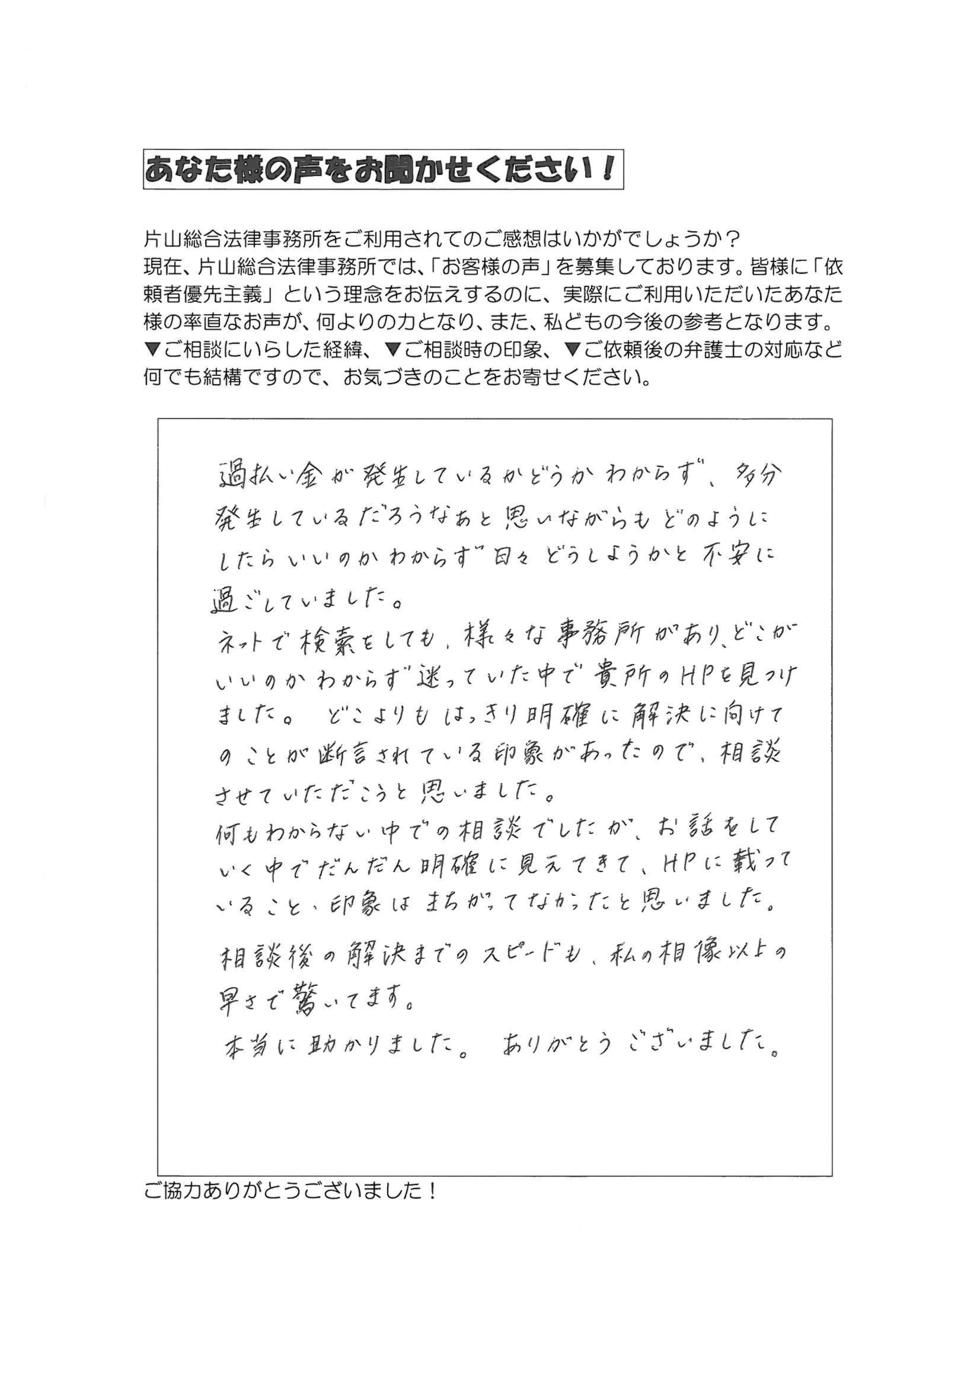 あなた様の声をお聞かせください！
片山総合法律事務所をご利用されてのご感想はいかがでしょうか？
現在、片山総合法律事務所では、「お客様の声」を募集しております。皆様に「依
頼者優先主義」という理念をお伝えするのに、実際にご利用いただいたあなた
様の率直なお声が、何よりの力となり、また、私どもの今後の参考となります。
▼ご相談にいらした経緯、▼ご相談時の印象、▼ご依頼後の弁護士の対応など
何でも結構ですので、お気づきのことをお寄せください。
過払い金が発生しているかどうかわからず、多分
発生しているだろうなぁと思いながらもどのように
したらいいのかわからず日々どうしようかと不安に
過ごしていました。
ネットで検索をしても、様々な事務所があり、どこが
いいのかわからず迷っていた中で貴所のHPを見つけ
ました。 どこよりもはっきり明確に解決に向けて
のことが断言されている印象があったので、相談
させていただこうと思いました。
何もわからない中での相談でしたが、お話をして
いく中でだんだん明確に見えてきて、HPに載って
いること、印象はまちがってなかったと思いました。
相談後の解決までのスピードも、私の相像以上の
早さで驚いてます。
本当に助かりました。 ありがとうございました。
ご協力ありがとうございました！